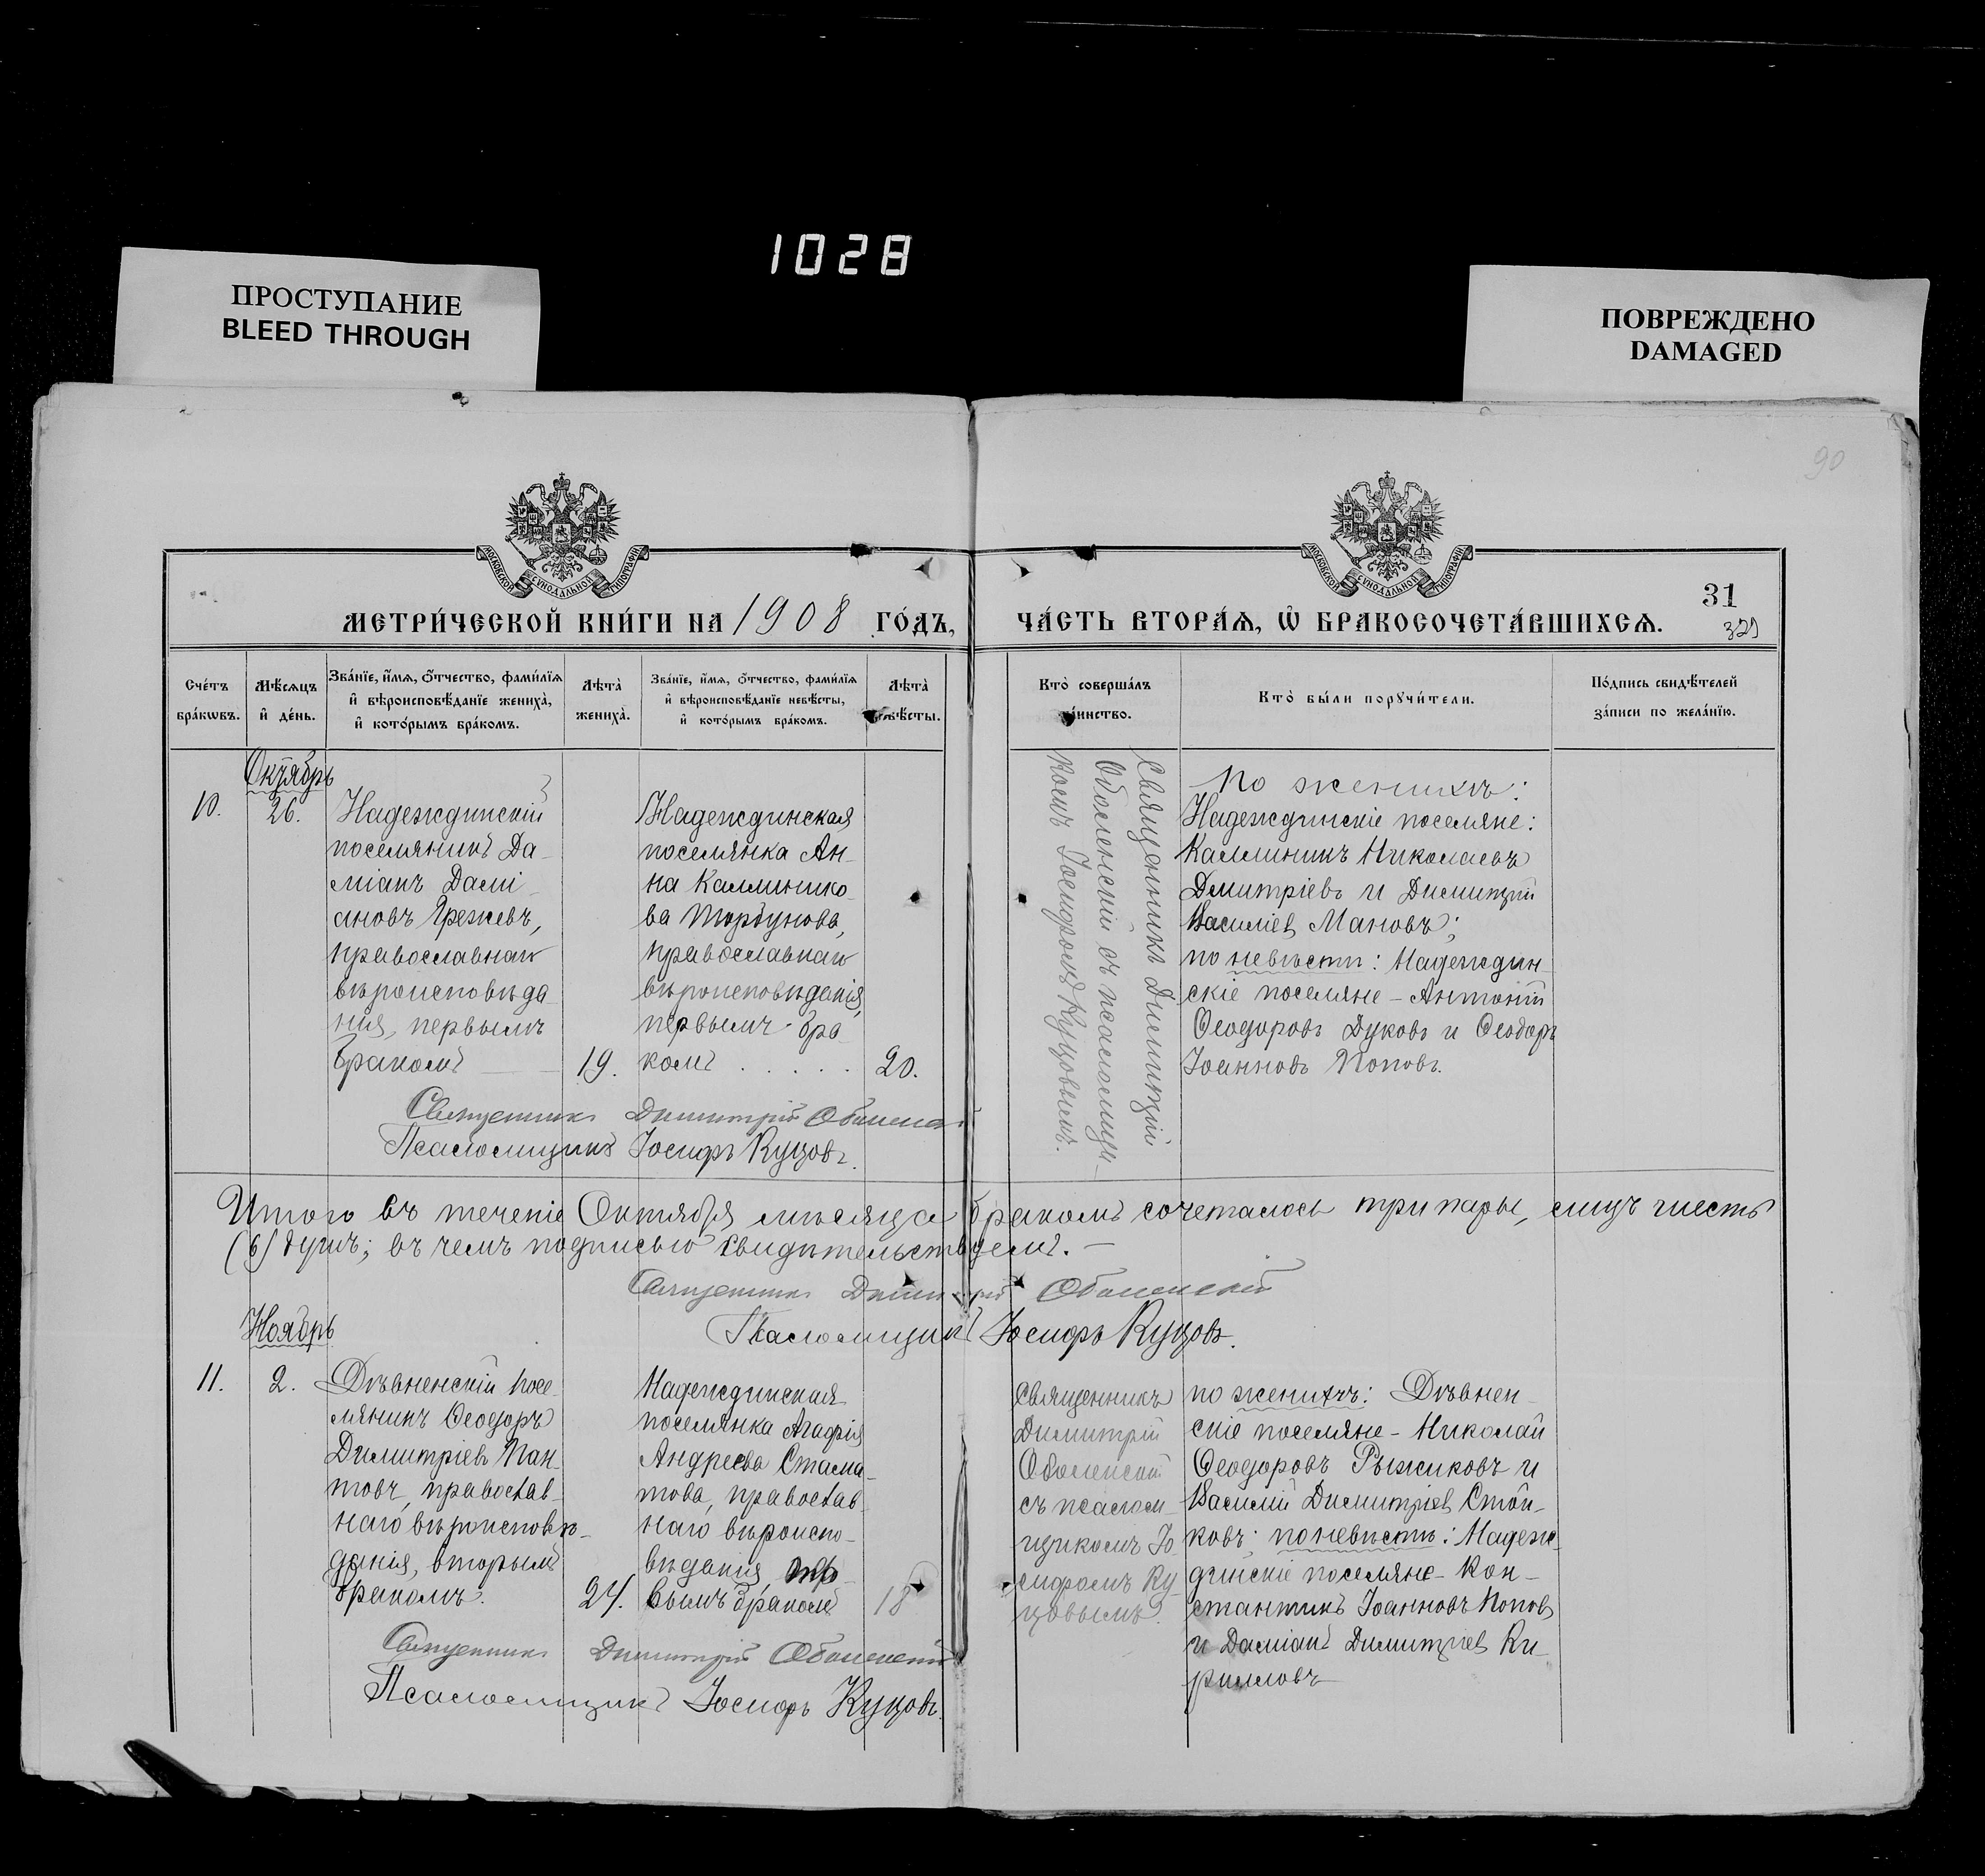 1028
ПРОСТУПАНИЕ
BLEED THROUGH
ПОВРЕЖДЕНО
DAMAGED
90
МОСКОВСКОЙ СѴНОДАЛЬНОЙ ТИПОГРАФІИ
МОСКОВСКОЙ СѴНОДАЛЬНОЙ ТИПОГРАФІИ
31
МЕТРИ́ЧЕСКОЙ КНИ́ГИ НА 1908 ГО́ДЪ,
ЧА́СТЬ ВТОРА́Ѧ, Ѡ҆ БРАКОСОЧЕТА́ВШИХСѦ.
329
Сче́тъ
бра́кѡвъ.
Мѣ́сѧцъ
и҆ де́нь.
Зва́нїе, и҆́мѧ, ѻ҆́тчество, фами́лїѧ
и҆ вѣроисповѣ́данїе жениха̀,
и҆ кото́рымъ бра́комъ.
Лѣта̀
жениха̀.
Зва́нїе, и҆́мѧ, ѻ҆́тчество, фами́лїѧ
и҆ вѣроисповѣ́данїе невѣ́сты,
и҆ кото́рымъ бра́комъ.
Лѣта̀
невѣ́сты.
Кто̀ соверша́лъ
та́инство.
Кто̀ бы́ли порꙋчи́тели.
По́дпись свидѣ́телей
за́писи по жела́нїю.
Октябрь
10.
26.
Надеждинскій
поселянинъ Да-
міанъ Дамі-
ановъ Грежевъ,
православнаго
вѣроисповѣда
нія, первымъ
бракомъ
19.
Надеждинская
поселянка Ан-
на Каллинико-
ва Торбунова,
православнаго
вѣроисповѣданія,
первымъ бра
комъ . . . . .
20.
Священникъ Димитрій
Оболенскій съ псаломщи-
комъ Іосифомъ Куцовымъ.
По женихѣ:
Надеждинскіе поселяне:
Каллиникъ Николаевъ
Дмитріевъ и Димитрій
Василіев Мановъ;
по невѣстѣ: Надеждин-
скіе поселяне - Антоній
Ѳеодоровъ Дуковъ и Ѳеодоръ
Іоанновъ Поповъ.
Священникъ Димитрій Оболенскій
Псаломщикъ Іосифъ Куцовъ.
Итого въ теченіе Октября мѣсяца бракомъ сочеталось три пары, лицъ шесть
(6) душъ; въ чемъ подписью свидѣтельствуемъ. -
Священникъ Димитрій Оболенскій
Псаломщикъ Іосифъ Куцовъ.
Ноябрь
11.
2.
Дѣвненскій посе-
лянинъ Ѳеодоръ
Димитріевъ Пан-
товъ, православ-
наго вѣроисповѣ-
данія, вторымъ
бракомъ.
24.
Надеждинская
поселянка Агафія
Андреева Стама-
това, православ
наго вѣроиспо-
вѣданія,
вымъ бракомъ
18
Священникъ
Димитрій
Оболенскій
съ псалом-
щикомъ Іо-
сифомъ Ку-
цовымъ.
по женихѣ: Дѣвнен-
скіе поселяне - Николай
Ѳеодоровъ Рыжиковъ и
Василій Димитріев Стой-
ковъ; по невѣстѣ: Надеж-
динскіе поселяне - Кон-
стантинъ Іоанновъ Попов
и Даміанъ Димитріев Ки-
рилловъ
Священникъ Димитрій Оболенскій
Псаломщикъ Іосифъ Куцовъ.